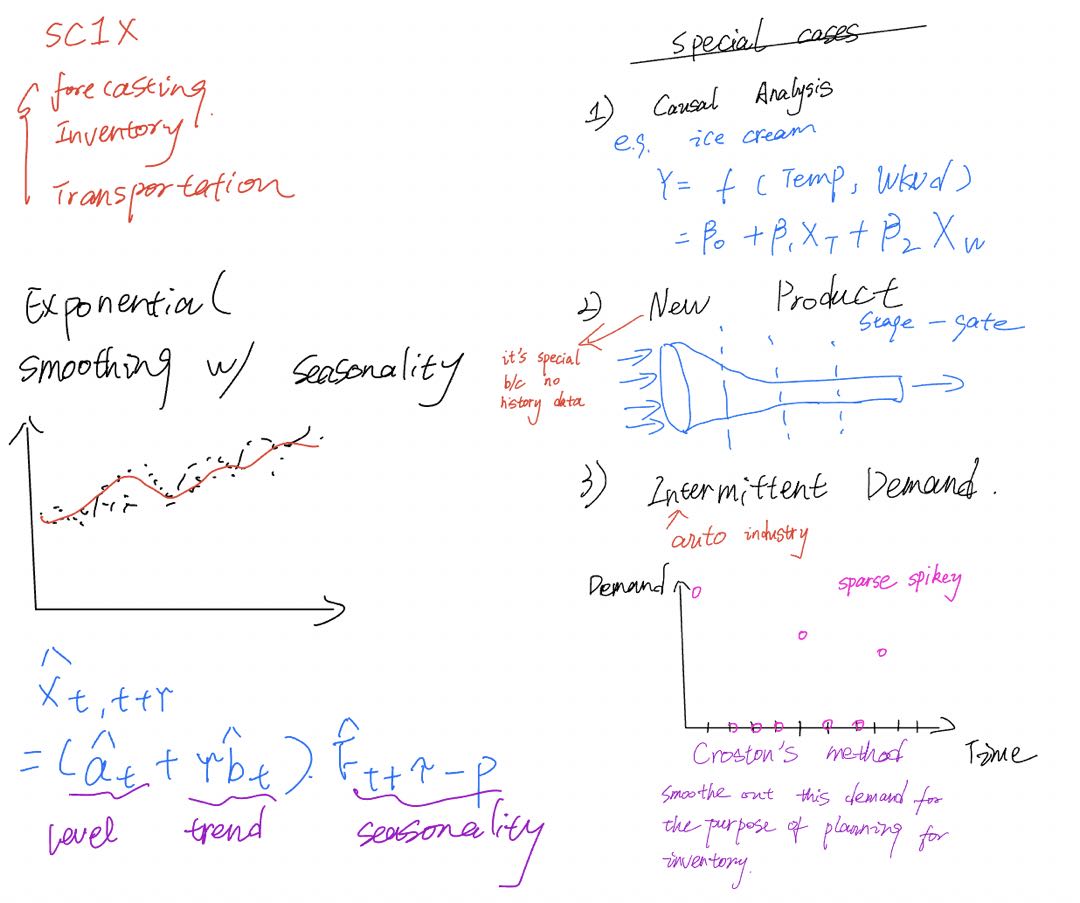 SC1X
forecasting
Inventory
Transportation
Exponential
smoothing w/ seasonality
x̂ t, t+τ
= (â t + τ b̂ t) . F̂ t+τ-p
level trend seasonality
special cases
1) Causal Analysis
e.g. ice cream
Y = f (Temp, Wknd)
= β₀ + β₁ X_T + β₂ X_W
2) New Product
Stage - gate
it's special
b/c no
history data
3) Intermittent Demand.
auto industry
Demand
sparse spikey
Time
Croston's method
smoothe out this demand for
the purpose of planning for
inventory.